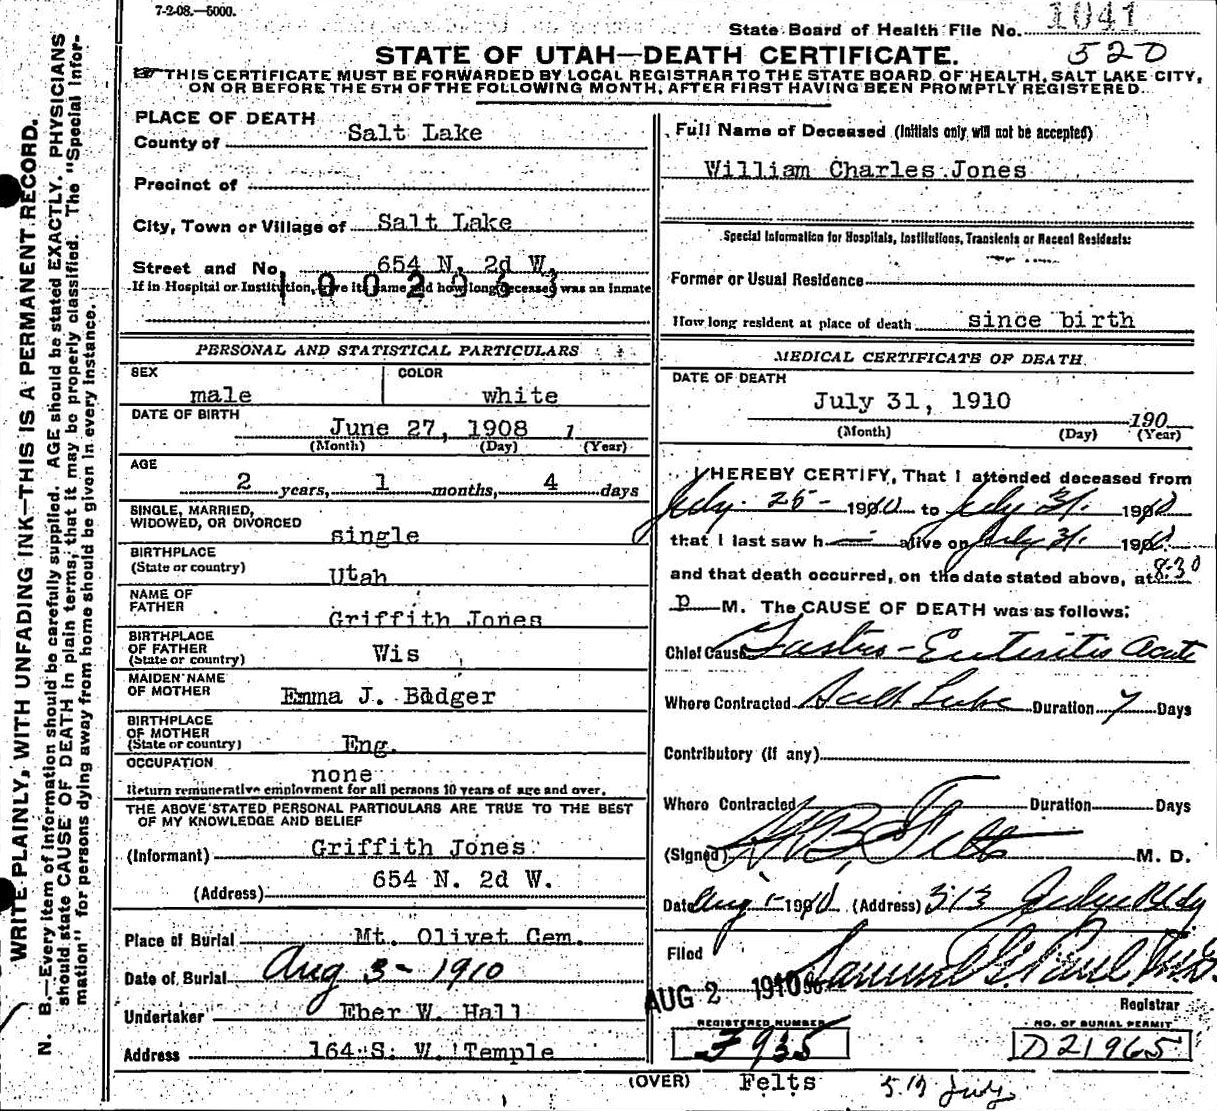 7-2-08.—5000.
State Board of Health File No. 1041
520
STATE OF UTAH—DEATH CERTIFICATE.
THIS CERTIFICATE MUST BE FORWARDED BY LOCAL REGISTRAR TO THE STATE BOARD OF HEALTH, SALT LAKE CITY,
ON OR BEFORE THE 5TH OF THE FOLLOWING MONTH, AFTER FIRST HAVING BEEN PROMPTLY REGISTERED.
WRITE PLAINLY, WITH UNFADING INK—THIS IS A PERMANENT RECORD.
N. B.—Every item of information should be carefully supplied. AGE should be stated EXACTLY. PHYSICIANS
should state CAUSE OF DEATH in plain terms, that it may be properly classified. The "Special Infor-
mation" for persons dying away from home should be given in every instance.
PLACE OF DEATH
County of Salt Lake
Precinct of
City, Town or Village of Salt Lake
Street and No. 654 N. 2d W.
If in Hospital or Institution, give its name and how long deceased was an inmate
PERSONAL AND STATISTICAL PARTICULARS
SEX COLOR
male white
DATE OF BIRTH
June 27, 1908 1
(Month) (Day) (Year)
AGE
2 years, 1 months, 4 days
SINGLE, MARRIED,
WIDOWED, OR DIVORCED
single
BIRTHPLACE
(State or country)
Utah
NAME OF
FATHER
Griffith Jones
BIRTHPLACE
OF FATHER
(State or country)
Wis
MAIDEN NAME
OF MOTHER
Emma J. Badger
BIRTHPLACE
OF MOTHER
(State or country)
Eng.
OCCUPATION
none
Return remunerative employment for all persons 10 years of age and over.
THE ABOVE STATED PERSONAL PARTICULARS ARE TRUE TO THE BEST
OF MY KNOWLEDGE AND BELIEF
(Informant) Griffith Jones
(Address) 654 N. 2d W.
Place of Burial Mt. Olivet Cem.
Date of Burial Aug 3 - 1910
Undertaker Eber W. Hall
Address 164 S. W. Temple
Full Name of Deceased (Initials only, will not be accepted)
William Charles Jones
Special Information for Hospitals, Institutions, Transients or Recent Residents:
Former or Usual Residence
How long resident at place of death since birth
MEDICAL CERTIFICATE OF DEATH
DATE OF DEATH
July 31, 1910
190
(Month) (Day) (Year)
I HEREBY CERTIFY, That I attended deceased from
July 25 - 1910 to July 31. 1910
that I last saw h — alive on July 31. 1910
and that death occurred, on the date stated above, at 8:30
p M. The CAUSE OF DEATH was as follows:
Chief Cause Gastro-Enteritis Acute
Where Contracted Salt Lake Duration 7 Days
Contributory (if any)
Where Contracted Duration Days
(Signed) Felts M. D.
Date Aug 1 - 1910 (Address) 513 Judge Bldg
Filed
AUG 2 1910 Samuel G. Paul
Registrar
REGISTERED NUMBER
F 935
NO. OF BURIAL PERMIT
D21965
(OVER) Felts 513 Judg